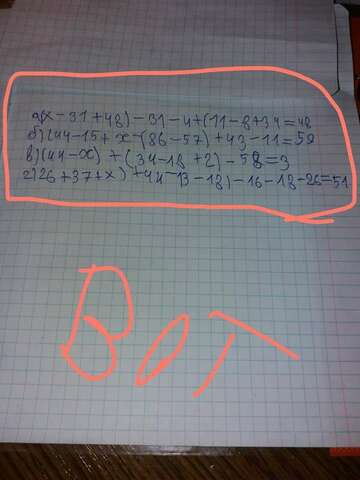 а)(x-31+48)-31-4+(11-8+34=48
б)(44-15+x-(86-57)+43-11=59
в)(44-x)+(34-18+2)-58=3
г)26+37+x)+44-13-18)-16-18-26=51
Вот